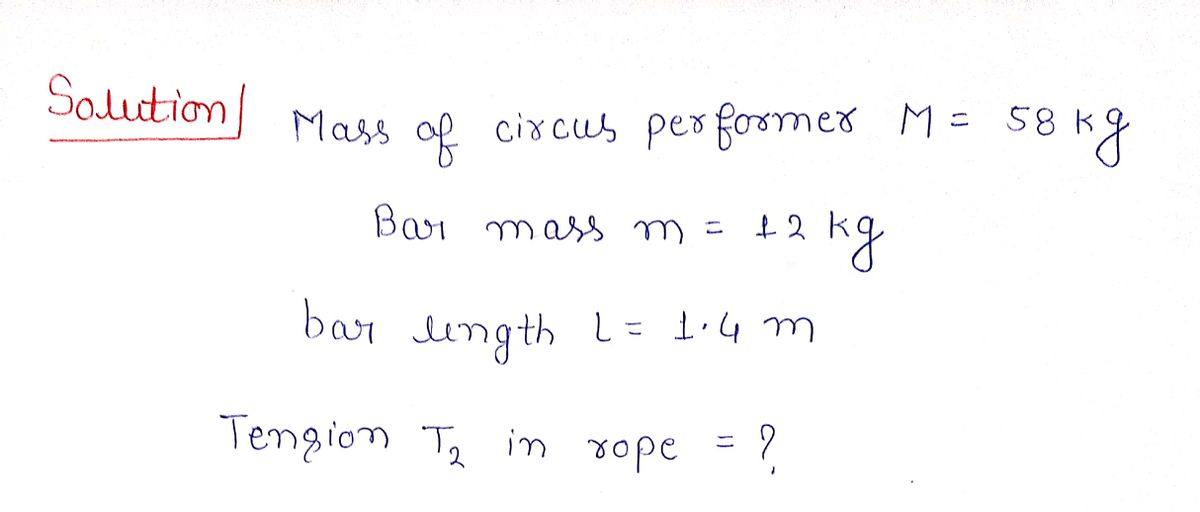 Solution Mass of circus performer M = 58 kg
Bar mass m = 12 kg
bar length L = 1.4 m
Tension T₂ in rope = ?